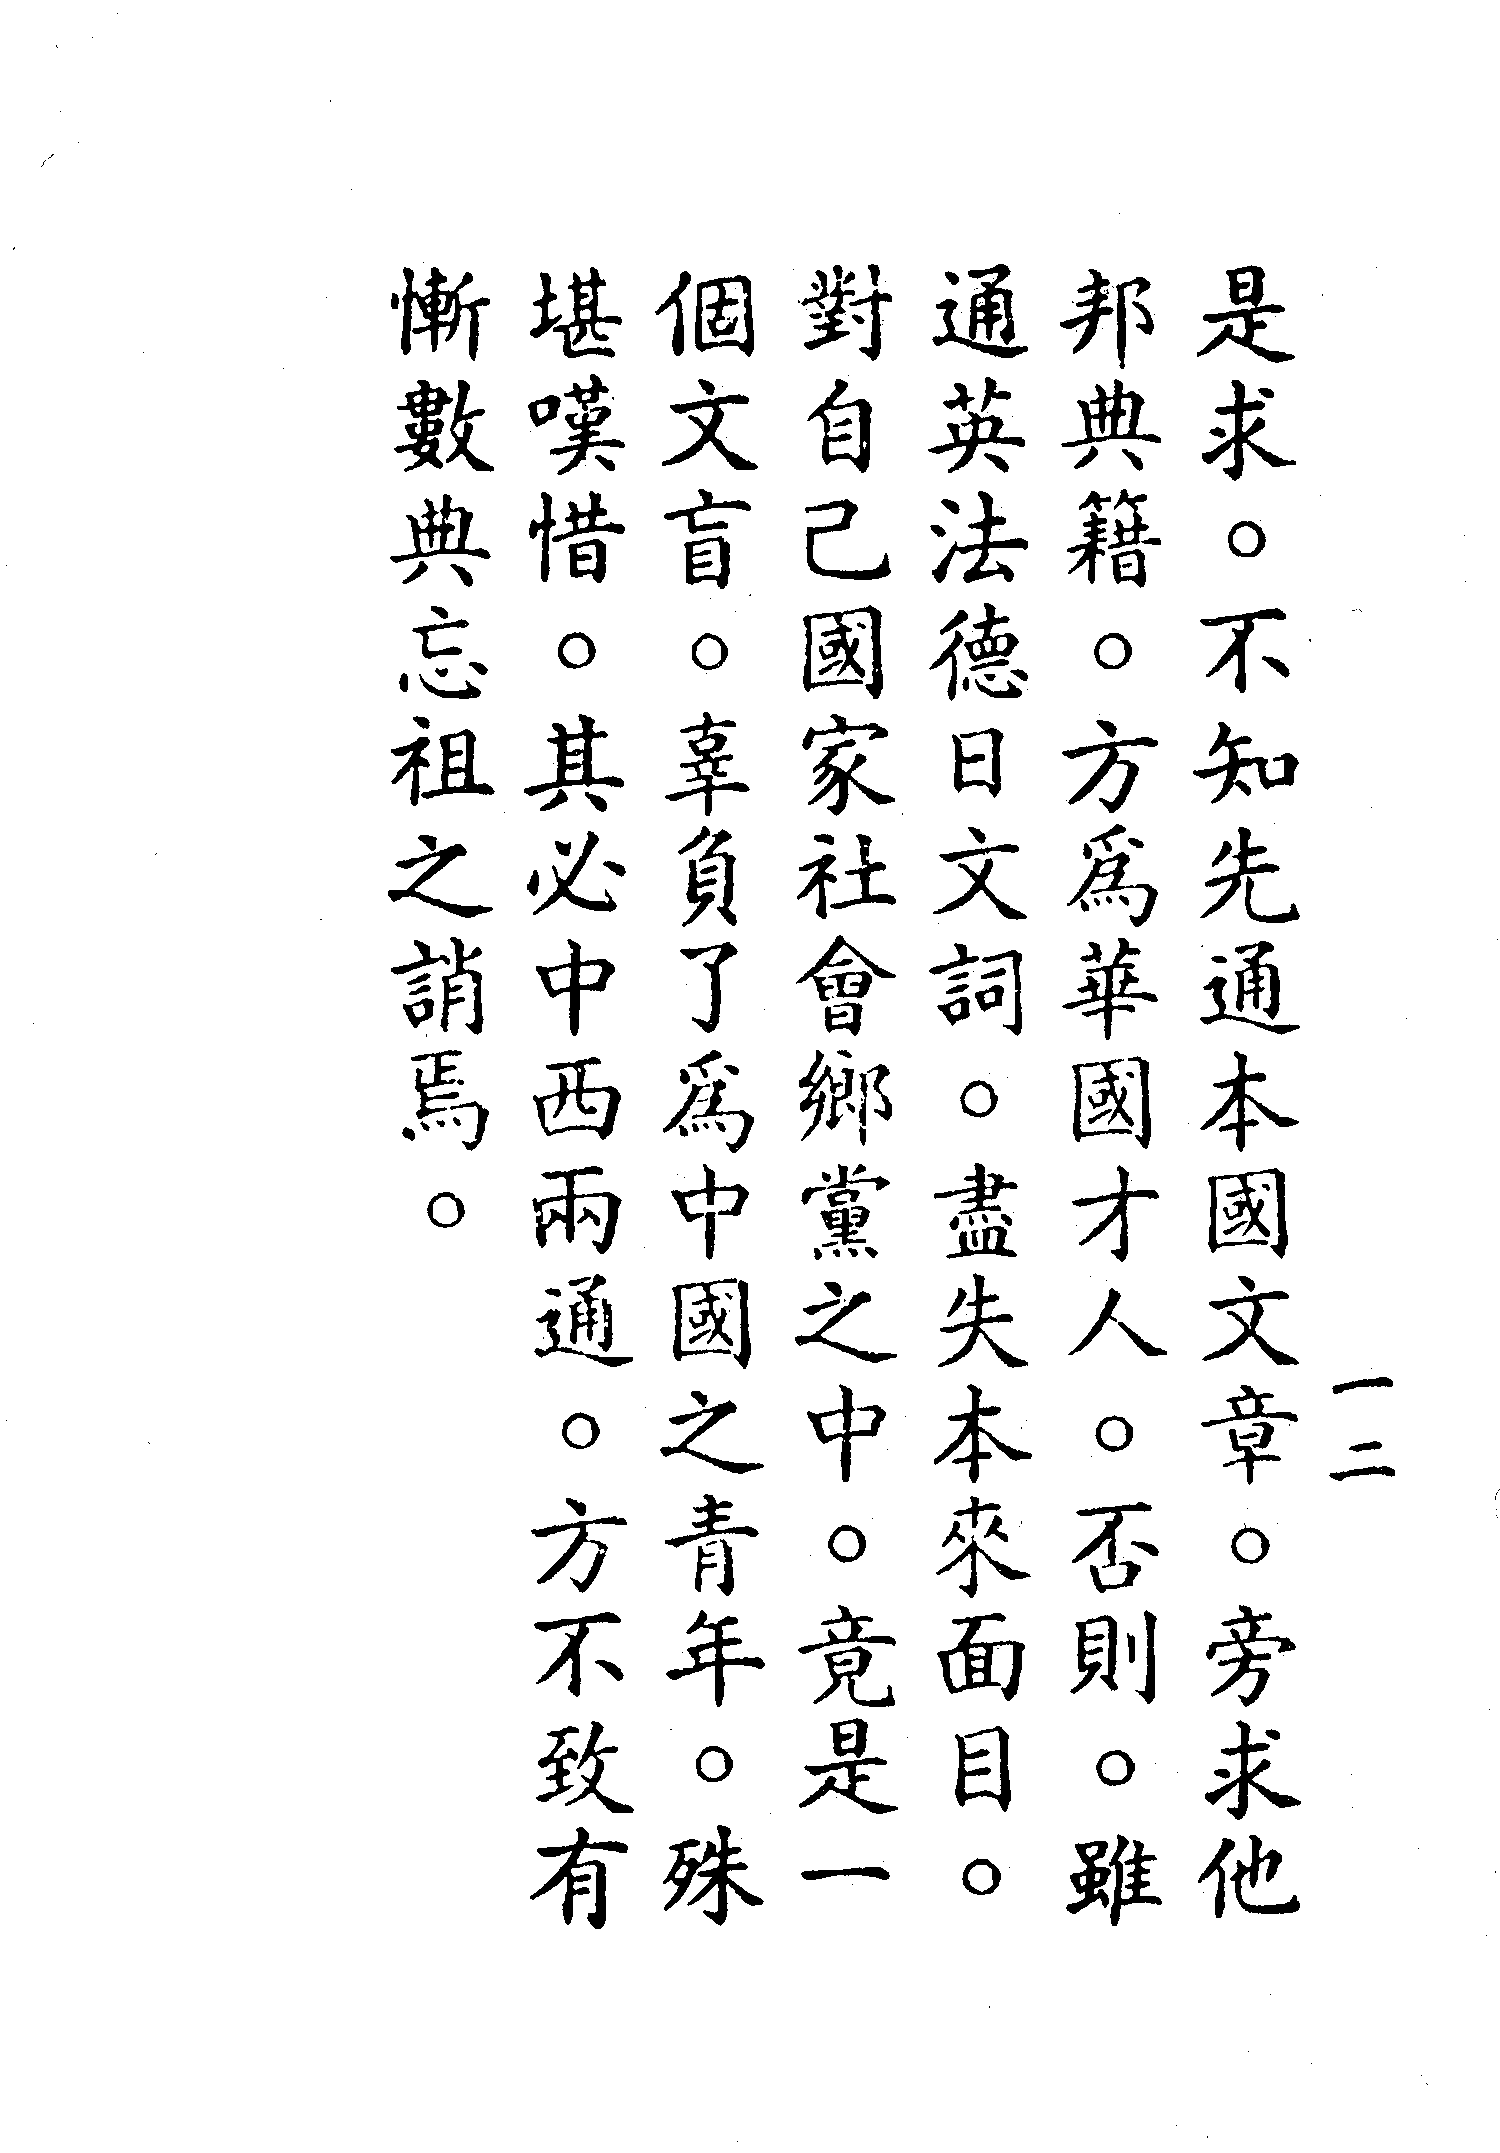 一二
是求。不知先通本國文章。旁求他
邦典籍。方爲華國才人。否則。雖
通英法德日文詞。盡失本來面目。
對自己國家社會鄉黨之中。竟是一
個文盲。辜負了爲中國之青年。殊
堪嘆惜。其必中西兩通。方不致有
慚數典忘祖之誚焉。